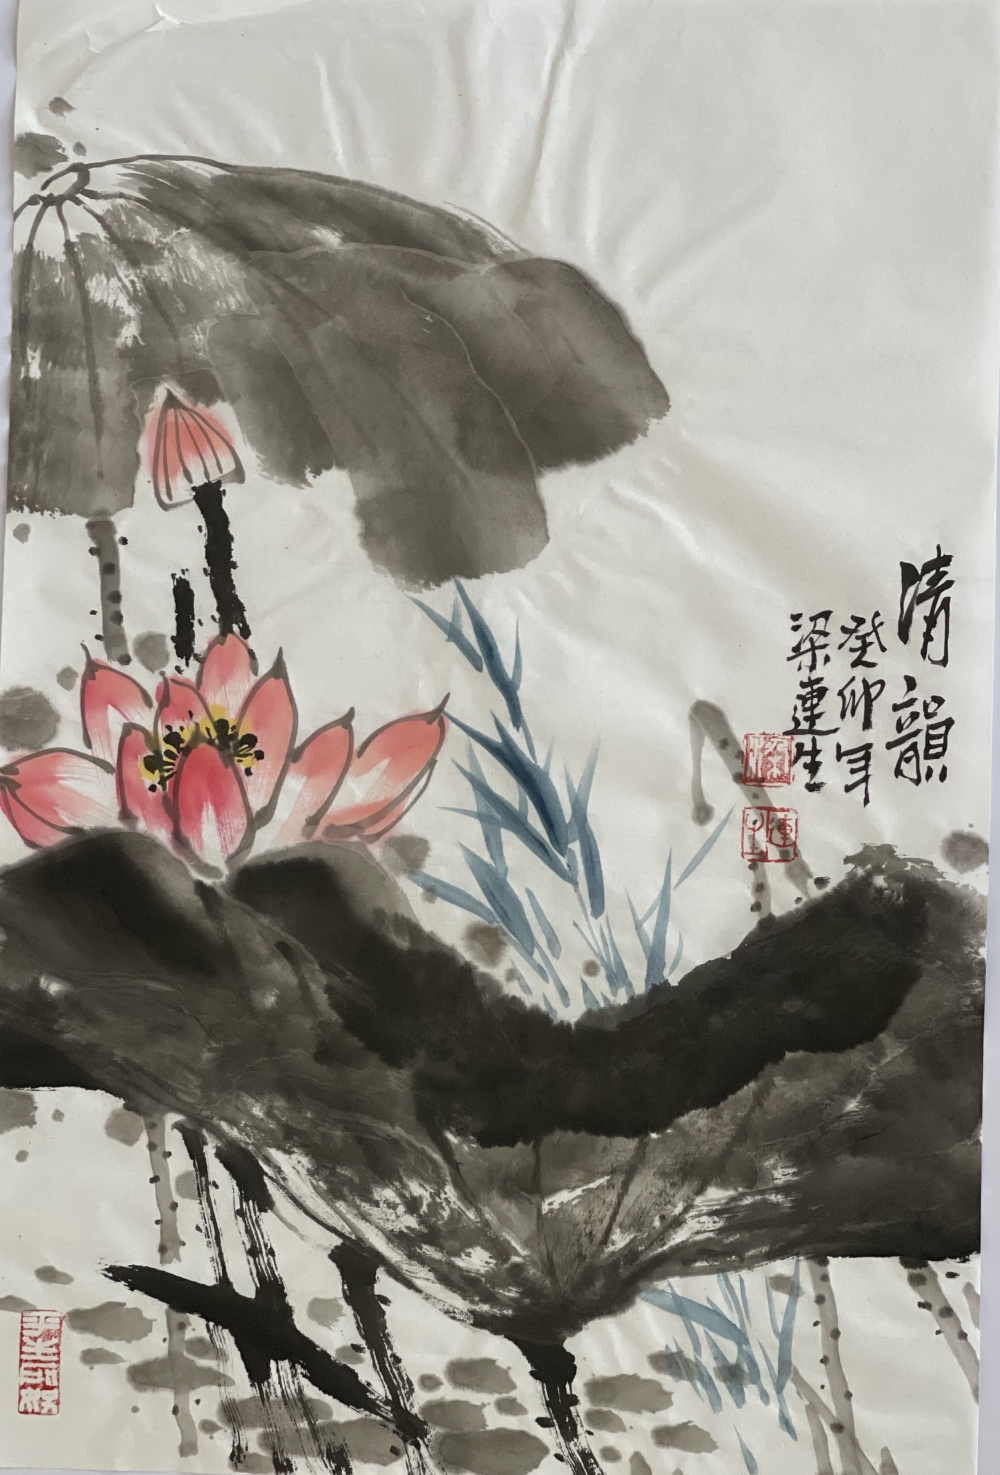 清韻
癸卯年
梁連生